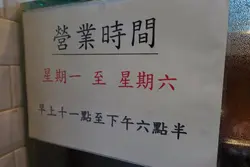 營業時間
星期一 至 星期六
早上十一點至下午六點半